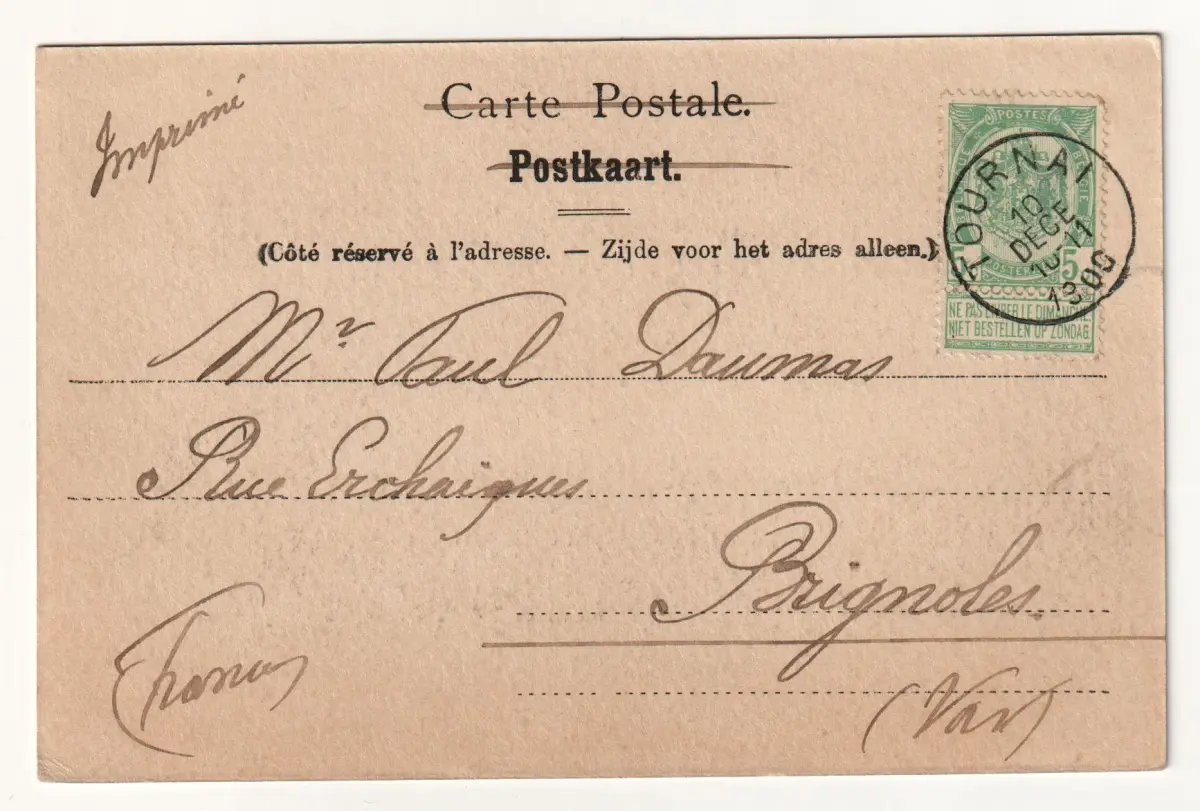 Imprimé
Carte Postale.
Postkaart.
(Côté réservé à l'adresse. — Zijde voor het adres alleen.)
POSTES
BELGIQUE
BELGIE
POSTERIJEN
5
NE PAS LIVRER LE DIMANCHE
NIET BESTELLEN OP ZONDAG
TOURNAI
10
DECE
10-11
1900
Mr Paul Daumas
Rue Erchaigues
Brignoles
(France)
(Var)